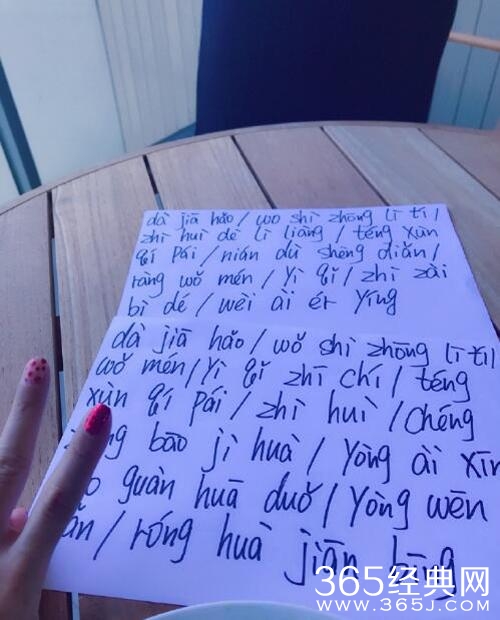 dà jiā hǎo / wo shì zhōng lì tí /
zhì huì dé lì liàng / téng xùn
qí Pái / nián dù shèng diǎn /
ràng wǒ mén / Yì qǐ / zhì zài
bì dé / wèi ài ér Yíng
dà jiā hǎo / wǒ shì zhōng lì tí /
wǒ mén / Yì qǐ zhī chí / téng
xùn qí pái / zhì huì / chéng
bāo jì huà / Yòng ài xīn
guàn huā duǒ / Yòng wēn
/ róng huà jiān bīng
365经典网
WWW.365J.COM